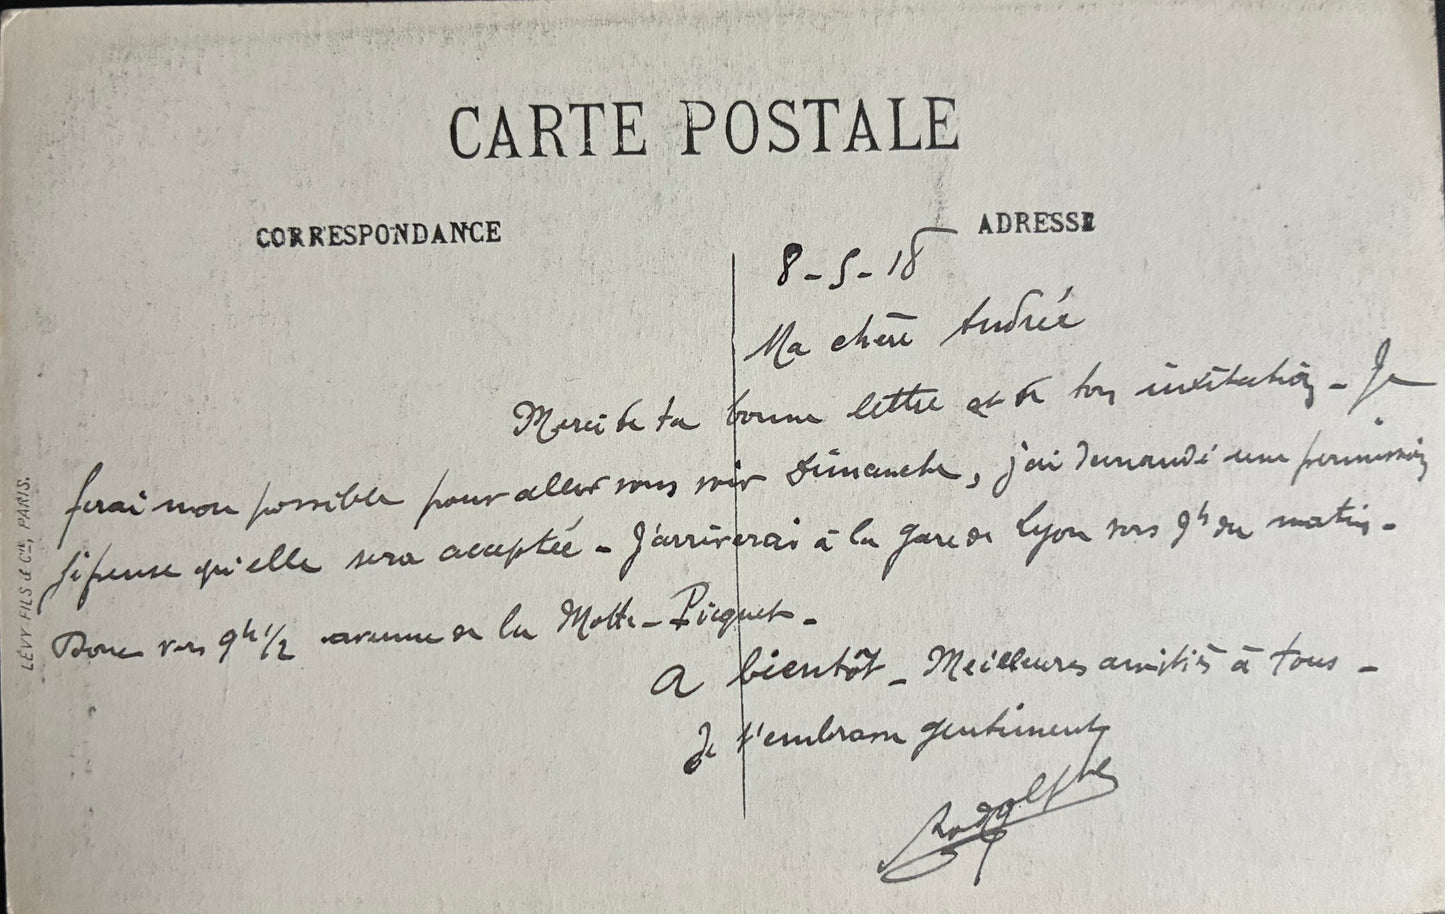 CARTE POSTALE
CORRESPONDANCE
ADRESSE
8-5-18
Ma chère Andrée
Merci de ta bonne lettre et de ton invitation - Je
ferai mon possible pour aller vous voir Dimanche, j'ai demandé une permission
je pense qu'elle sera acceptée - J'arriverai à la gare de Lyon vers 9h du matin -
Donc vers 9h 1/2 avenue de la Motte-Picquet -
A bientôt - Meilleures amitiés à tous -
Je t'embrasse gentiment
Rodolphe
LÉVY FILS & Cie, PARIS.